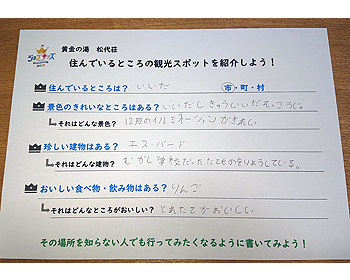 黄金の湯 松代荘
住んでいるところの観光スポットを紹介しよう！
住んでいるところは？ いいだ 市・町・村
景色のきれいなところはある？ いいだし きゅういいだそくこうじょ
それはどんな景色？ 12月のイルミネーションがきれい
珍しい建物はある？ エス・バード
それはどんな建物？ むかし学校だったたてものをりようしている。
おいしい食べ物・飲み物はある？ りんご
それはどんなところがおいしい？ とれたてがおいしい
その場所を知らない人でも行ってみたくなるように書いてみよう！